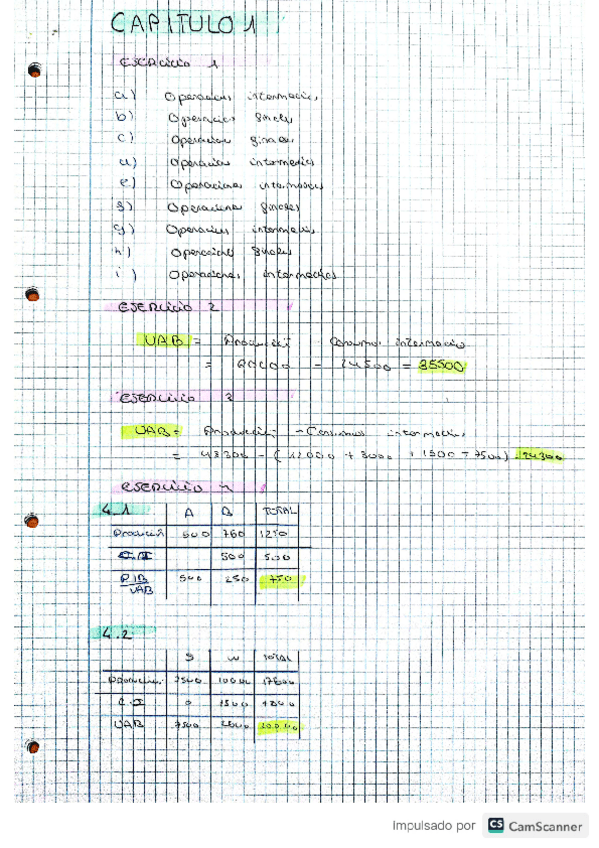 CAPITULO 1
EJERCICIO 1
a) Operaciones intermedias
b) Operaciones finales
c) Operaciones finales
d) Operaciones intermedias
e) Operaciones intermedias
f) Operaciones finales
g) Operaciones intermedias
h) Operaciones finales
i) Operaciones intermedias
EJERCICIO 2
VAB = Producción Consumos intermedios
= 60000 - 24500 = 35500
EJERCICIO 3
VAB = Producción - Consumos intermedios
= 48300 - (12000 + 3000 + 1500 + 7500) = 24300
EJERCICIO 4
4.1
A B TOTAL
Producción 500 750 1250
C.I 500 500
PIB/VAB 500 250 750
4.2
S W TOTAL
Producción 7500 10000
C.I 0 7500
VAB 7500
Impulsado por CS CamScanner